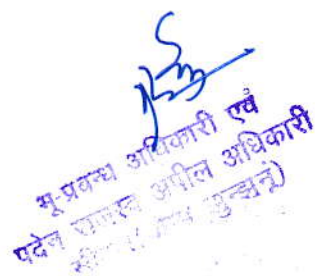 भू-प्रबन्ध अधिकारी एवं
पदेन राजस्व अपील अधिकारी
झुन्झुनूं)